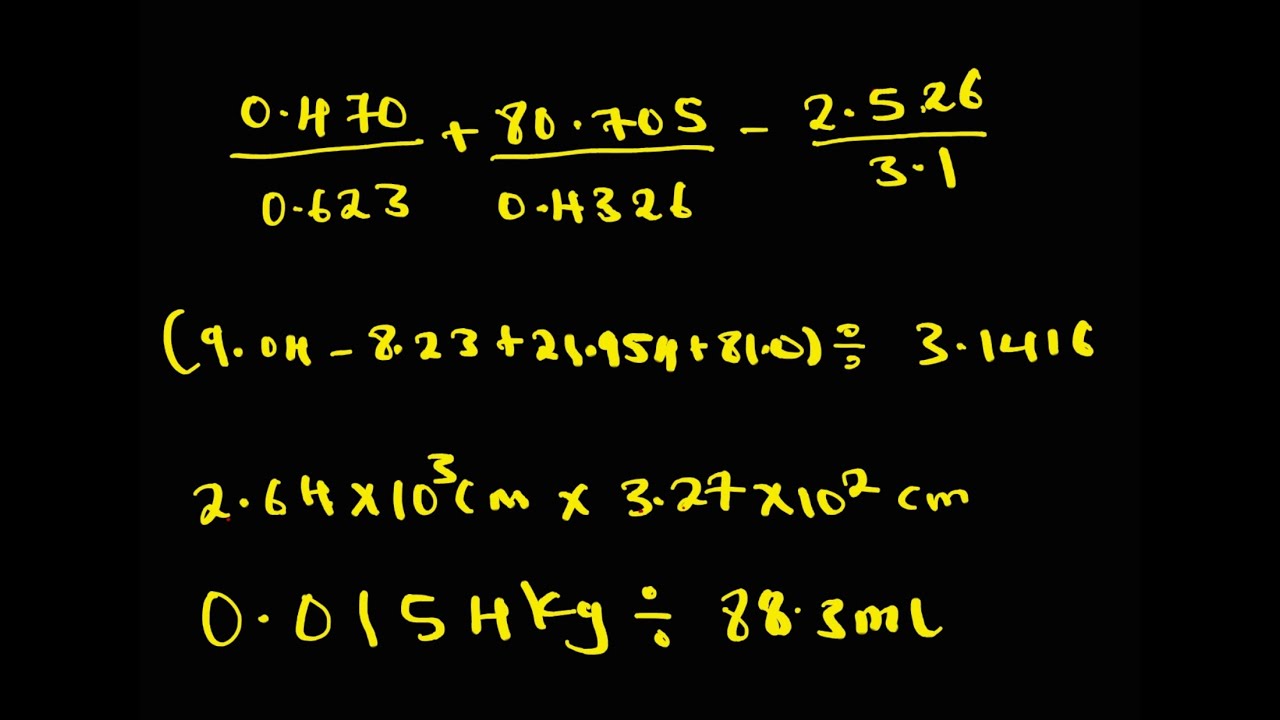 0.470/0.623 + 80.705/0.4326 - 2.526/3.1
(9.04 - 8.23 + 21.954 + 81.0) ÷ 3.1416
2.64 x 10³ cm x 3.27 x 10² cm
0.0154 kg ÷ 88.3 mL